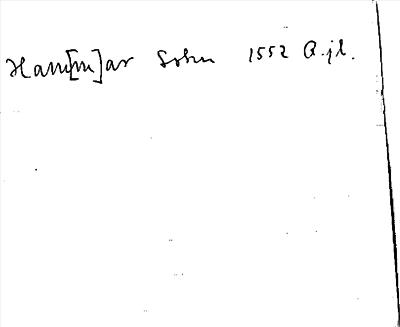 Ham[m]ar Sohn 1552 Q.jl.